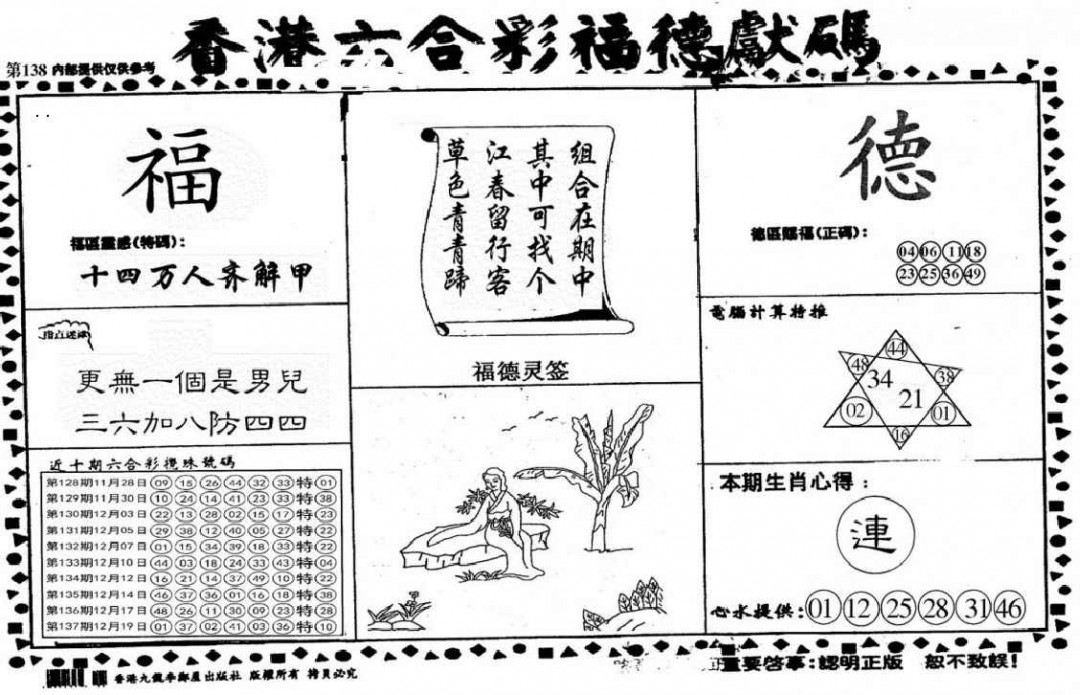 香港六合彩福德獻碼
第138 內部提供仅供參考
福
福區靈感(特碼):
十四万人齐解甲
更無一個是男兒
三六加八防四四
近十期六合彩攪珠號碼
第128期11月28日 09 15 26 44 32 33 特 01
第129期11月30日 10 24 14 41 23 33 特 38
第130期12月03日 22 13 28 02 15 17 特 23
第131期12月05日 29 38 12 40 05 27 特 22
第132期12月07日 01 15 34 39 18 33 特 22
第133期12月10日 44 03 18 24 33 43 特 04
第134期12月12日 16 21 14 37 49 10 特 22
第135期12月14日 46 37 36 01 16 18 特 38
第136期12月17日 48 26 11 30 09 23 特 28
第137期12月19日 01 37 02 41 03 36 特 10
组合在期中
其中可找个
江春留行客
草色青青蹄
福德灵签
德
德區賜福(正碼):
04 06 11 18
23 25 36 49
電腦計算特推
44
48 38
34
21
02 01
16
本期生肖心得:
連
心水提供: 01 12 25 28 31 46
重要啓事:認明正版 恕不致誤!
香港九龍李鄭屋出版社 版權所有 拷貝必究